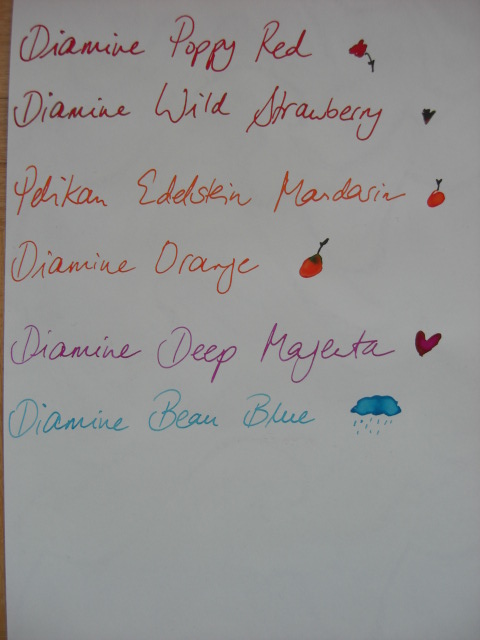 Diamine Poppy Red
Diamine Wild Strawberry
Pelikan Edelstein Mandarin
Diamine Orange
Diamine Deep Majenta
Diamine Beau Blue